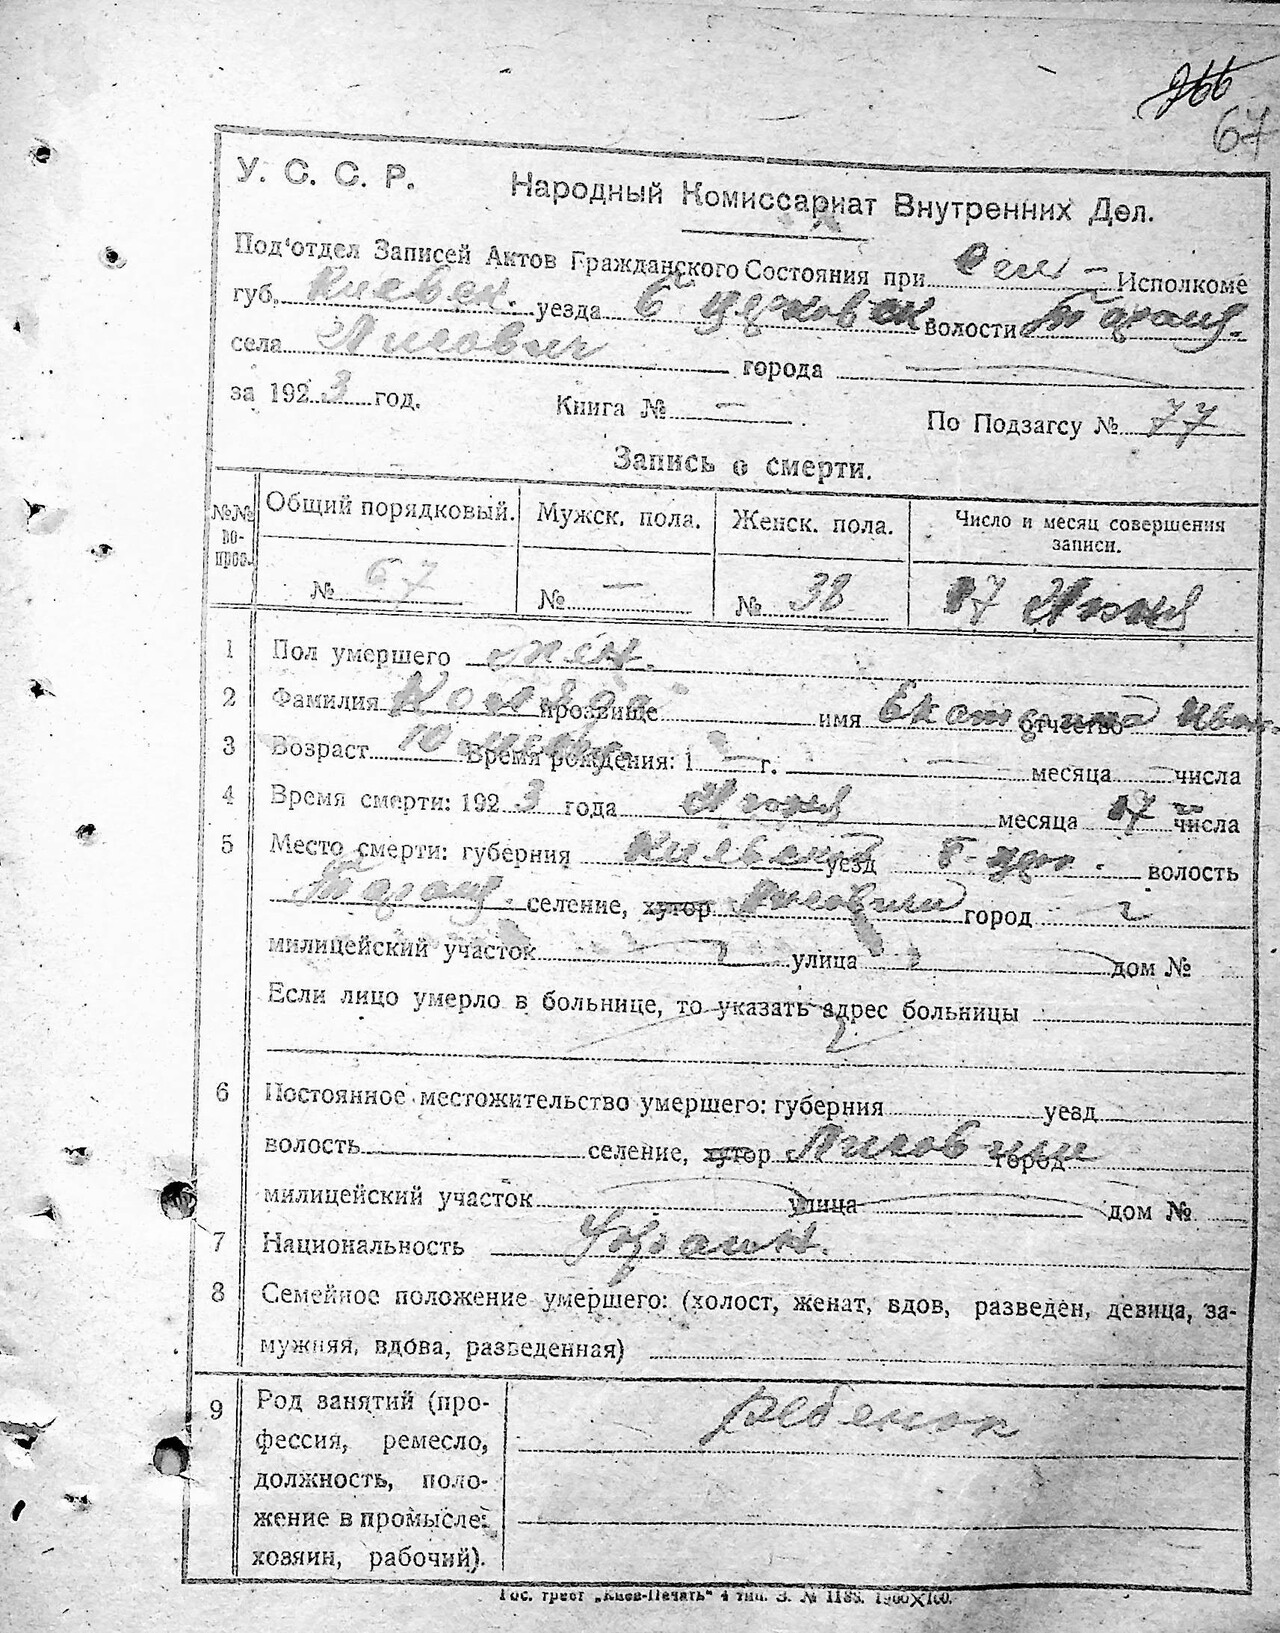 266
67
У. С. С. Р. Народный Комиссариат Внутренних Дел.
Под'отдел Записей Актов Гражданского Состояния при Сел – Исполкоме
губ. Киевск. уезда Б Церковск волости Таращ.
села Лисович города —
за 1923 год. Книга № — По Подзагсу № 77
Запись о смерти.
№№ вопрос. Общий порядковый. Мужск. пола. Женск. пола. Число и месяц совершения записи.
№ 67 № — № 38 17 Июня
1 Пол умершего жен.
2 Фамилия прозвище имя Екатерина отчество Иван.
3 Возраст 10 Время рождения: 1 — г. — месяца — числа
4 Время смерти: 1923 года Июня месяца 17 числа
5 Место смерти: губерния Киевская уезд Б-цер. волость
Таращ. селение, хутор Лисовичи город
милицейский участок улица дом №
Если лицо умерло в больнице, то указать адрес больницы
6 Постоянное местожительство умершего: губерния уезд
волость селение, хутор Лисовичи город
милицейский участок улица дом №
7 Национальность Украин.
8 Семейное положение умершего: (холост, женат, вдов, разведен, девица, за-
мужняя, вдова, разведенная)
9 Род занятий (про- ребенок
фессия, ремесло,
должность, поло-
жение в промысле:
хозяин, рабочий).
Гос. трест „Киев-Печать" 4 тип. З. № 1185. 1900×100.